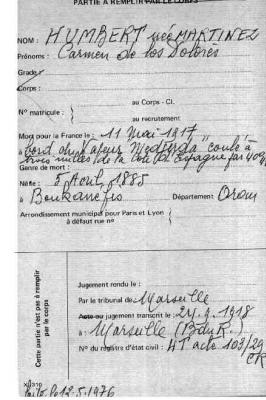 PARTIE A REMPLIR PAR LE CORPS
NOM : HUMBERT née MARTINEZ
Prénoms : Carmen de los Dolorès
Grade
Corps :
au Corps - Cl.
N° matricule :
au recrutement
Mort pour la France le : 11 Mai 1917
à bord du Vapeur "Medjerda" coulé à
trois milles de la Côte d'Espagne par
Genre de mort :
Née : 5 Avril 1885
à Boukanefis Département Oran
Arrondissement municipal pour Paris et Lyon
à défaut rue n°
Cette partie n'est pas à remplir
par le corps
Jugement rendu le :
Par le tribunal de Marseille
Acte ou jugement transcrit le 24.9.1918
à Marseille (BduR.)
N° du registre d'état civil : 4T acte 103/29
CR
12.5.1976